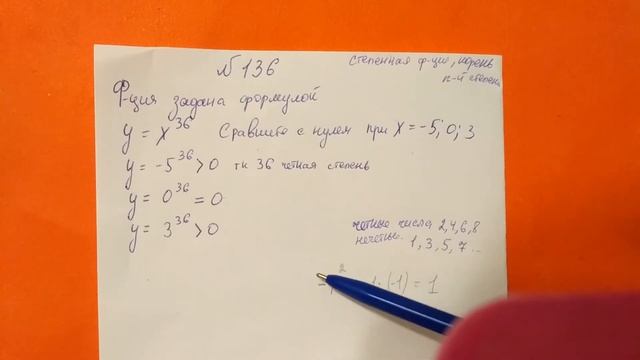 №136
степенная ф-ция, корень
n-й степени
Ф-ция задана формулой
y = x³⁶ Сравните с нулем при x = -5; 0; 3
y = -5³⁶ > 0 тк 36 четная степень
y = 0³⁶ = 0
y = 3³⁶ > 0
четные числа 2,4,6,8
нечетные. 1, 3, 5, 7 ..
(-1) = 1